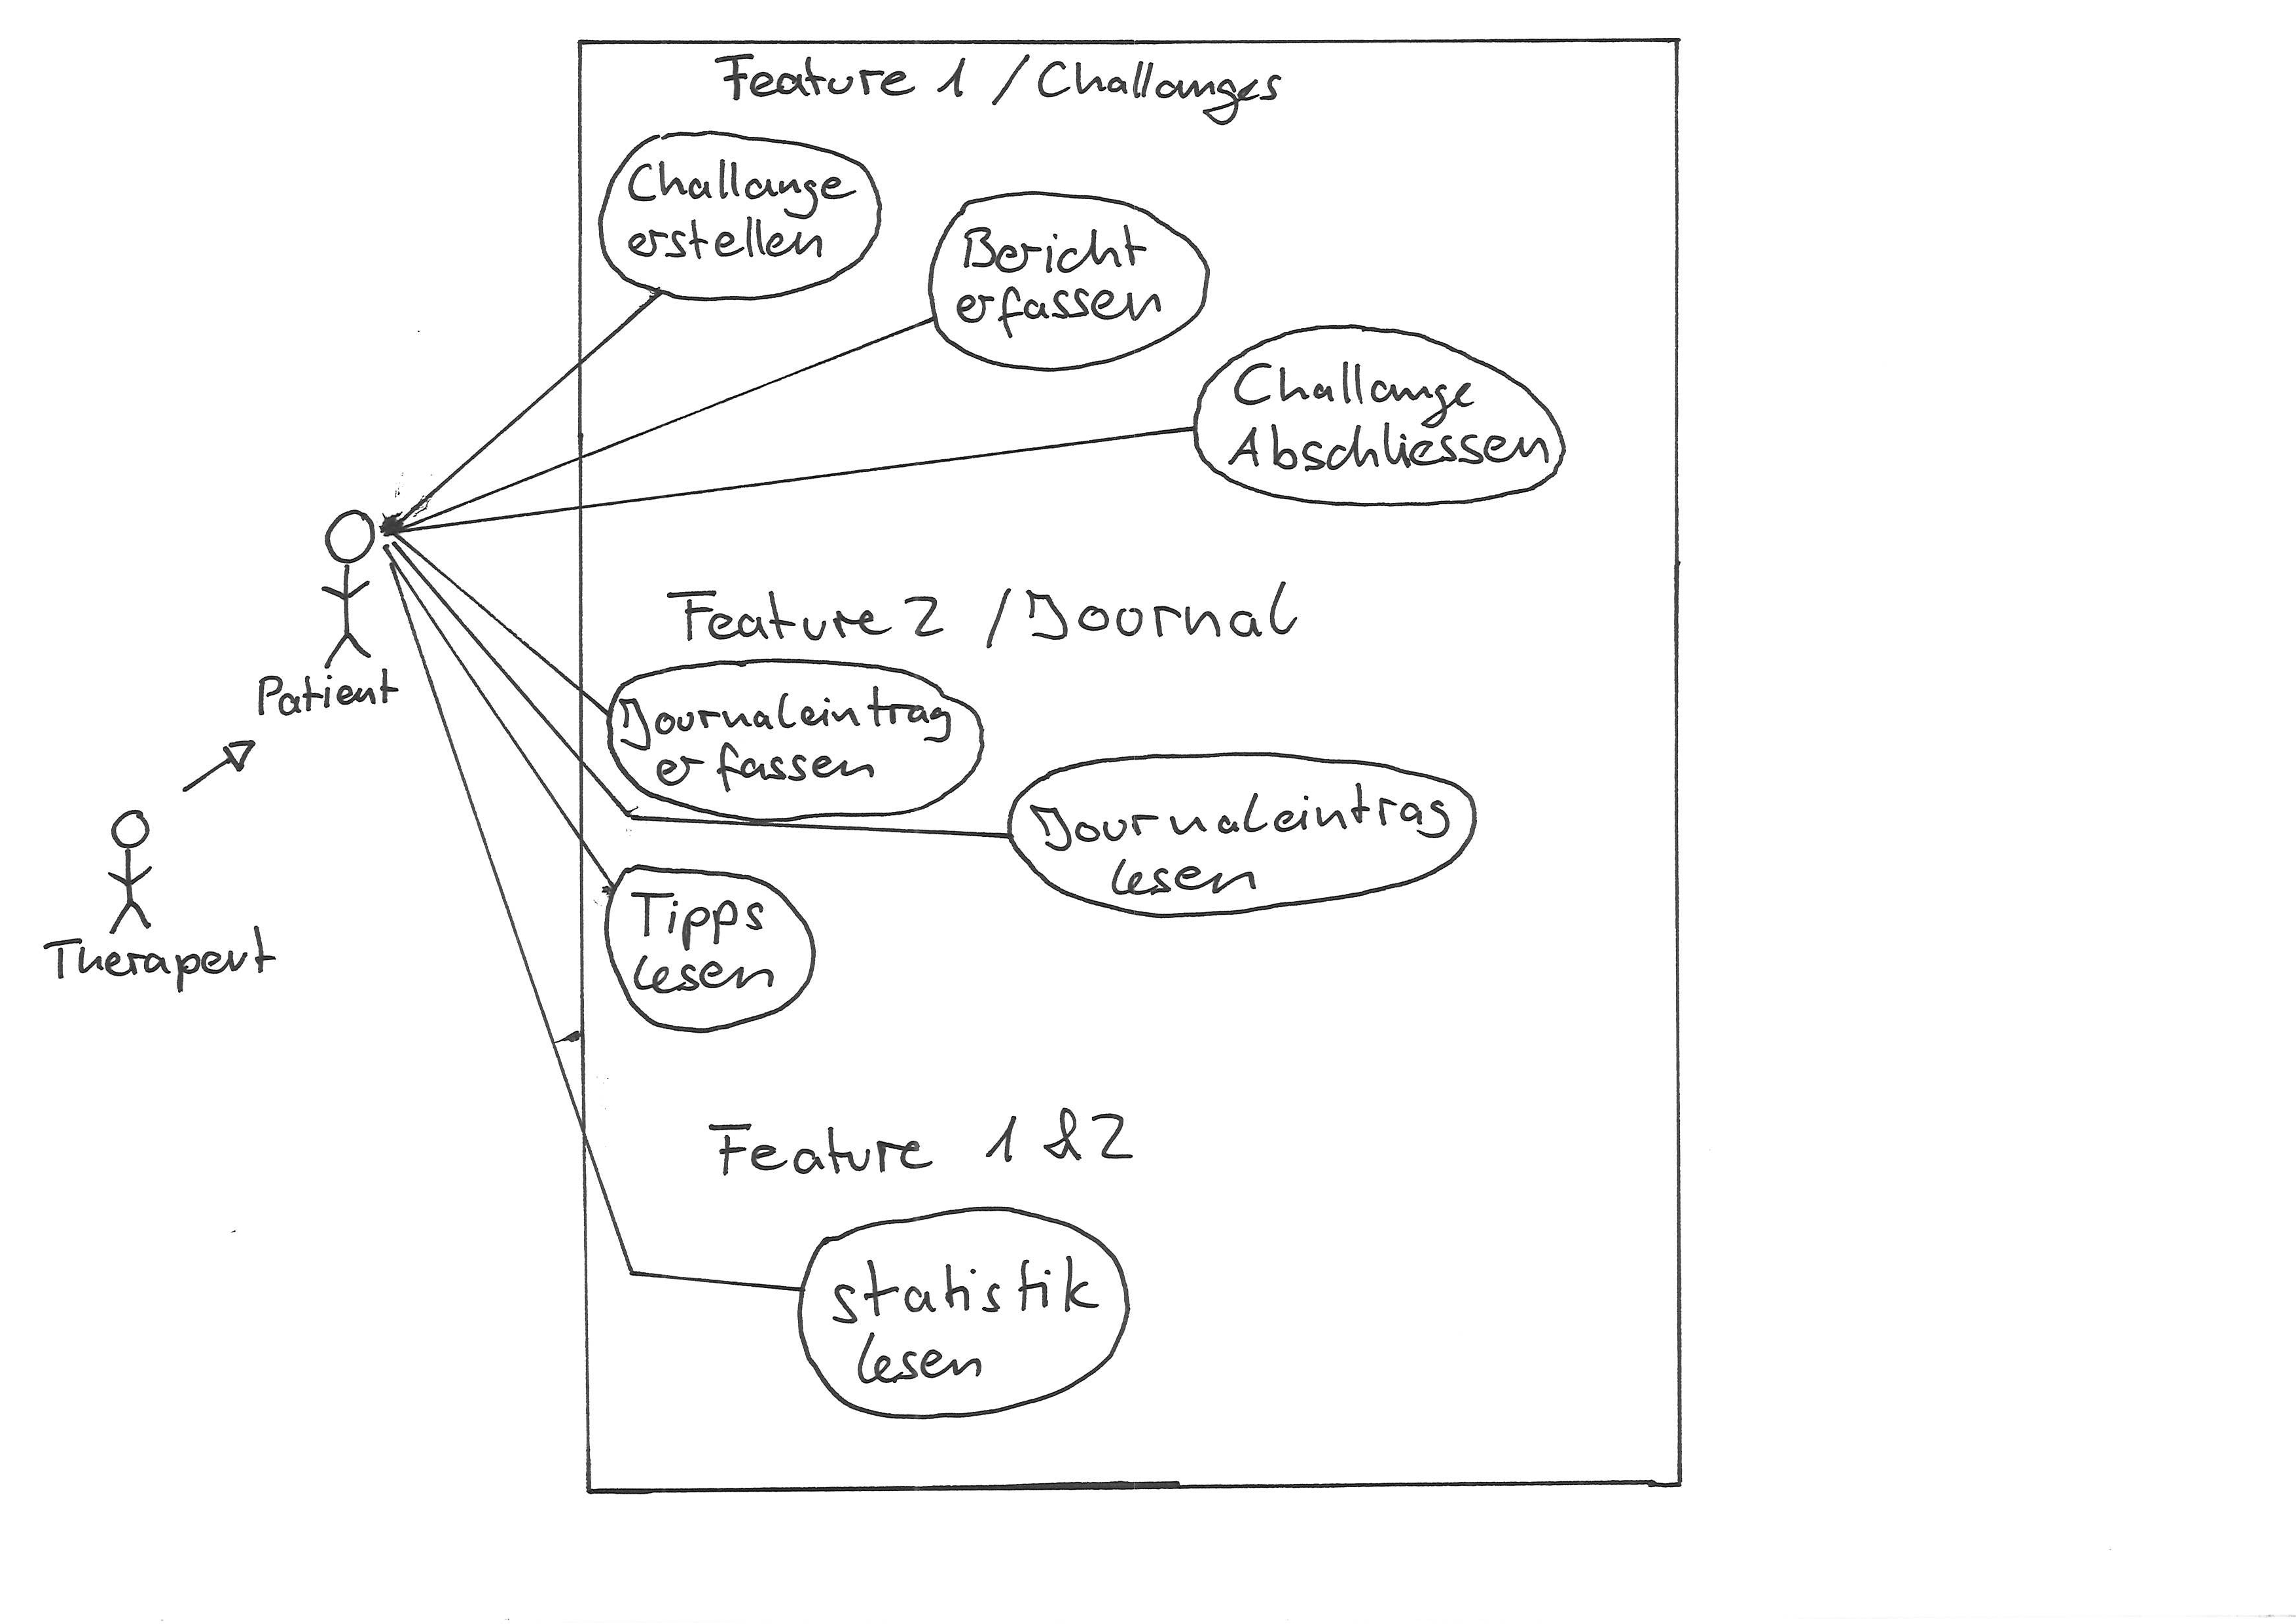 Feature 1 / Challanges
Challange
erstellen
Bericht
erfassen
Challange
Abschliessen
Patient
Feature 2 / Journal
Journaleintrag
erfassen
Journaleintrag
lesen
Therapeut
Tipps
lesen
Feature 1 & 2
statistik
lesen